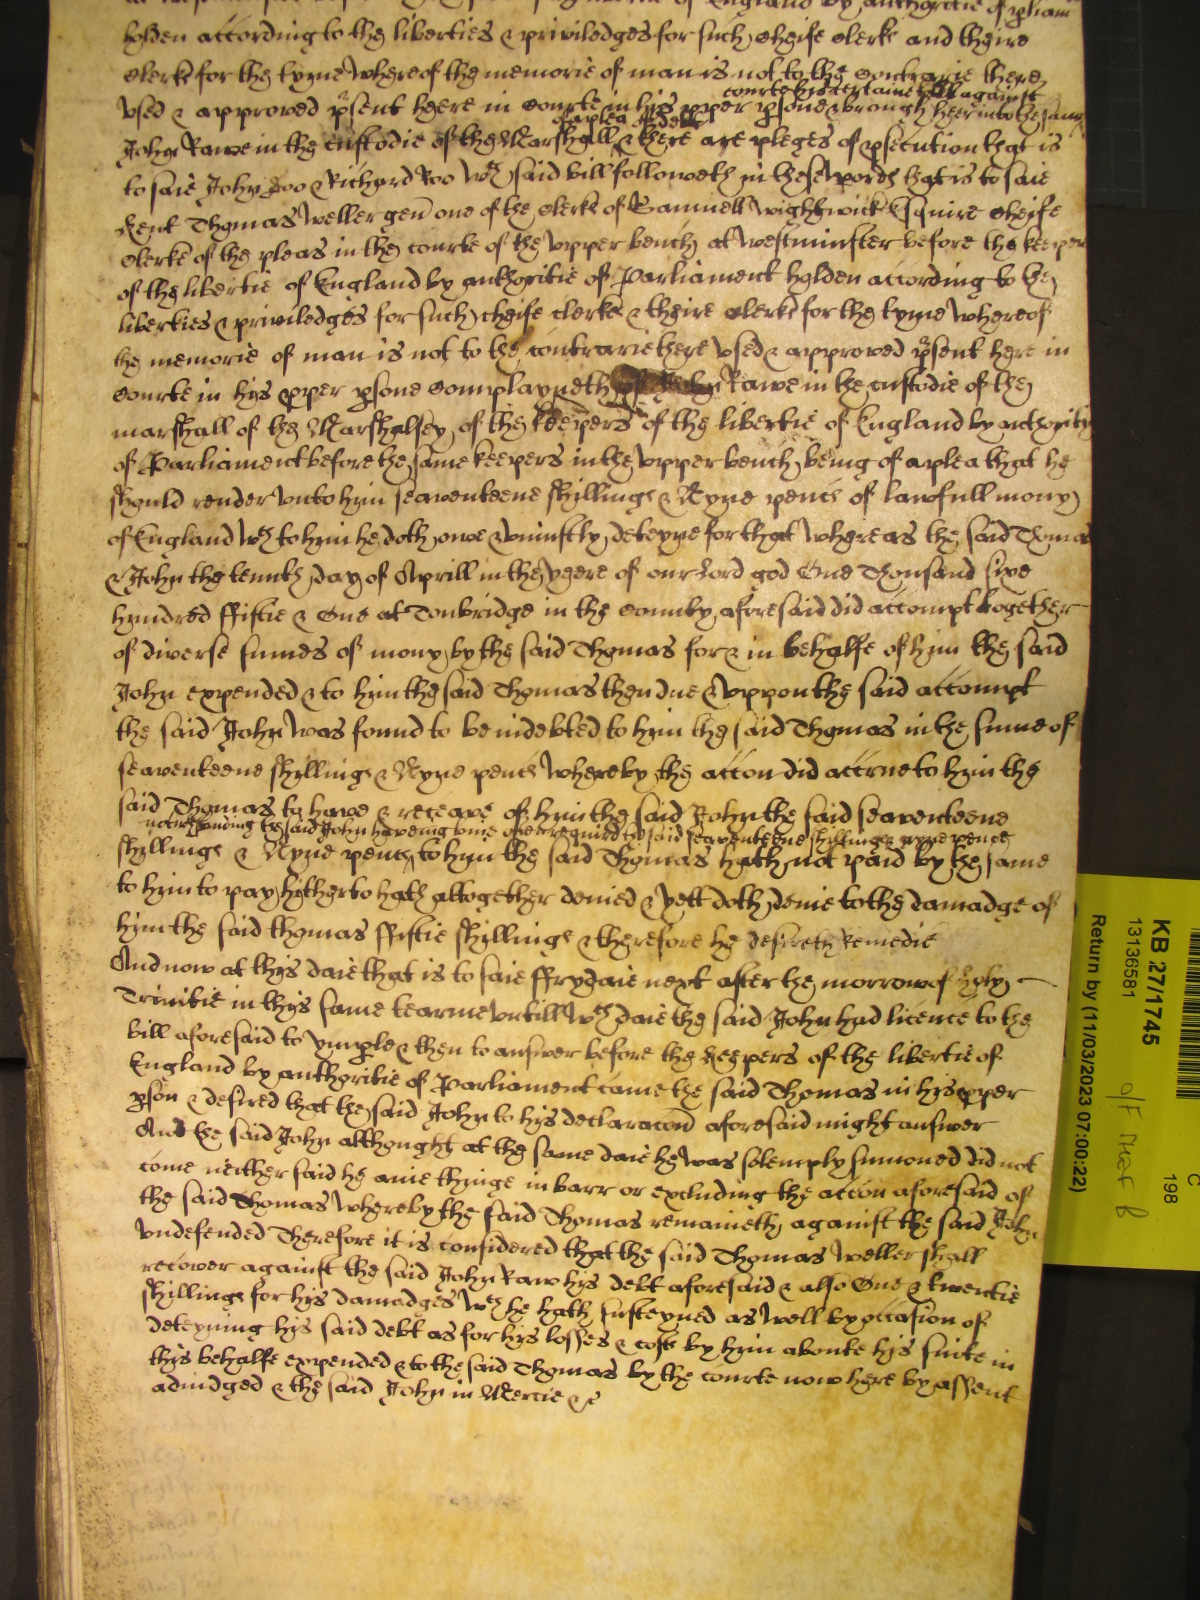 of England by authoritie of pliam
holden according to the liberties & priviledges for such cheife clerke and theire
clerks for the tyme whereof the memorie of man is not to the contrarie there
courte his certaine bill against
used & approved psent heere in courte in his pper psone & brough heer into the same
of a plea of debt
John Rawe in the custodie of the Marshall & there are pleges of psecution that is
to saie John Doo & Richard Roo wch said bill followeth in these words that is to saie
Kent Thomas Weller gen one of the clerks of Samuell Wightwick Esquire cheife
clerke of the pleas in the courte of the upper bench at Westminster before the keeper
of the libertie of England by authoritie of Parliament holden according to the
liberties & priviledges for such cheife clerks & theire clerks for the tyme whereof
the memorie of man is not to the contrarie there used & approved psent here in
courte in his pper psone complayneth of John Rawe in the custodie of the
marshall of the Marshalsey of the keepers of the libertie of England by authority
of Parliament before the same keepers in the upper bench being of a plea that he
should render unto him seaventeene shillings & Nyne pence of lawfull mony
of England wch to him he doth owe & uniustly deteyne for that whereas the said Thomas
& John the tennth day of Aprill in the yeere of our Lord god One Thousand sixe
hundred ffiftie & One at Tonbridge in the County aforesaid did accompt together
of diverse sumes of mony by the said Thomas for & in behalfe of him the said
John expended & to him the said Thomas then due & uppon the said accompt
the said John was found to be indebted to him the said Thomas in the sume of
seaventeene shillings & Nyne pence whereby the accon did accrue to him the
said Thomas to have & receave of him the said John the said seaventeene
notwthstanding the said John haveing bine often required the said seaventeene shillings nyne pence
shillings & Nyne pence to him the said Thomas hath not paid by the same
to him to pay hitherto hath altogether denied & yett doth denie to the damadge of
him the said thomas ffiftie shillings & therefore he desireth Remedie
And now at this daie that is to saie ffrydaie next after the morrow of holy
Trinitie in this same tearme untill wch daie the said John had licence to the
bill aforesaid to imple & then to answer before the Keepers of the libertie of
England by authoritie of Parliament came the said Thomas in his pper
pson & desired that the said John to his declaracon aforesaid might answer
And the said John althought at the same daie he was solemply sumoned did not
come neither said he anie thinge in barr or excluding the accon aforesaid of
the said Thomas whereby the said Thomas remaineth against the said John
undefended Therefore it is considered that the said Thomas Weller shall
recover against the said John Raw his debt aforesaid & also One & twentie
shillings for his damadges wch he hath susteyned as well by occasion of
deteyning his said debt as for his losses & costs by him aboute his suite in
this behalfe expended & to the said Thomas by the courte now here by assent
adiudged & the said John in Mercie &c
KB 27/1745
13136581
Return by (11/03/2023 07:00:22)
C
198
O/F Map B